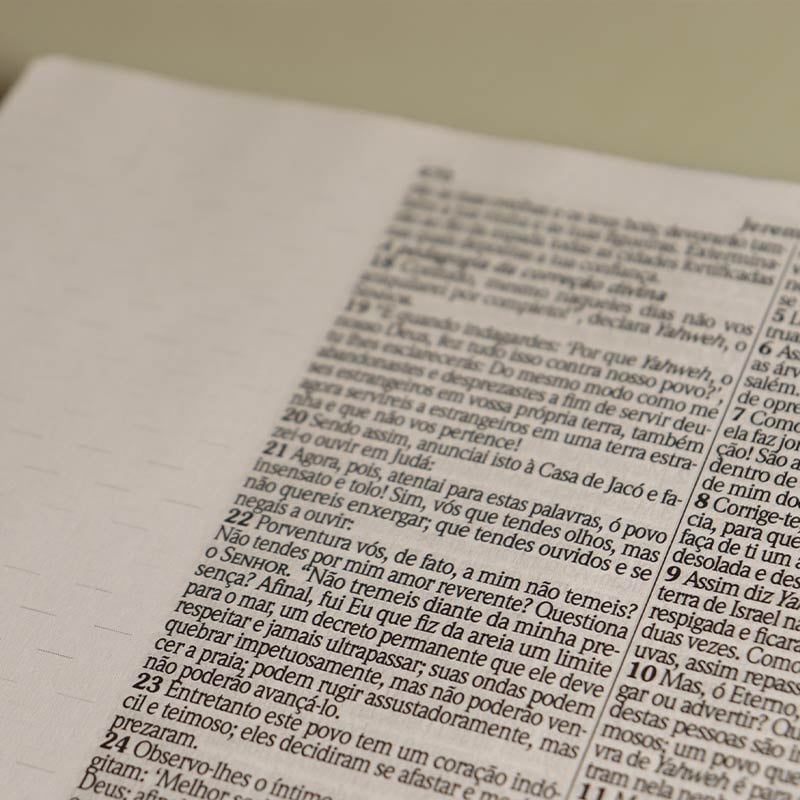 Jerem
tão as suas ovelhas e os teus bois; devorarão tam-
Extermina-
todas as cidades fortificadas
a tua confiança.
A pedagogia da correção divina
18 Contudo, mesmo naqueles dias não vos
por completo!”, declara Yahweh, o
19 “E quando indagardes: ‘Por que Yahweh, o
nosso Deus, fez tudo isso contra nosso povo?’,
tu lhes esclarecerás: Do mesmo modo como me
abandonastes e desprezastes a fim de servir deu-
ses estrangeiros em vossa própria terra, também
agora servireis a estrangeiros em uma terra estra-
nha e que não vos pertence!
20 Sendo assim, anunciai isto à Casa de Jacó e fa-
zei-o ouvir em Judá:
21 Agora, pois, atentai para estas palavras, ó povo
insensato e tolo! Sim, vós que tendes olhos, mas
não quereis enxergar; que tendes ouvidos e se
negais a ouvir:
22 Porventura vós, de fato, a mim não temeis?
Não tendes por mim amor reverente? Questiona
o SENHOR. “Não tremeis diante da minha pre-
sença? Afinal, fui Eu que fiz da areia um limite
para o mar, um decreto permanente que ele deve
respeitar e jamais ultrapassar; suas ondas podem
quebrar impetuosamente, mas não poderão ven-
cer a praia; podem rugir assustadoramente, mas
não poderão avançá-lo.
23 Entretanto este povo tem um coração indó-
cil e teimoso; eles decidiram se afastar e me
prezaram.
24 Observo-lhes o íntimo
gitam: ‘Melhor se
Deus; afin
se
5 L
trua
6 Ass
as árv
salém.
de opre
7 Como
ela faz jor
ção! São a
dentro de
de mim do
8 Corrige-te
cia, para que
faça de ti um a
desolada e des
9 Assim diz Ya
terra de Israel na
respigada e ficara
duas vezes. Como
uvas, assim repass
10 Mas, ó Eterno,
gar ou advertir? Qu
destas pessoas são i
mosos; um povo que
vra de Yahweh é para
tram nela
11 M